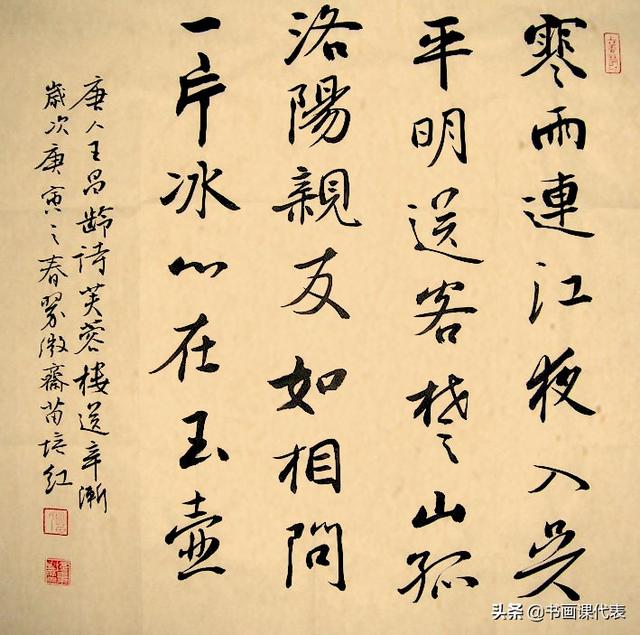 寒雨連江夜入吳
平明送客楚山孤
洛陽親友如相問
一片冰心在玉壺
唐人王昌齡詩芙蓉樓送辛漸
歲次庚寅之春翠微齋苗培紅
头条 @书画课代表